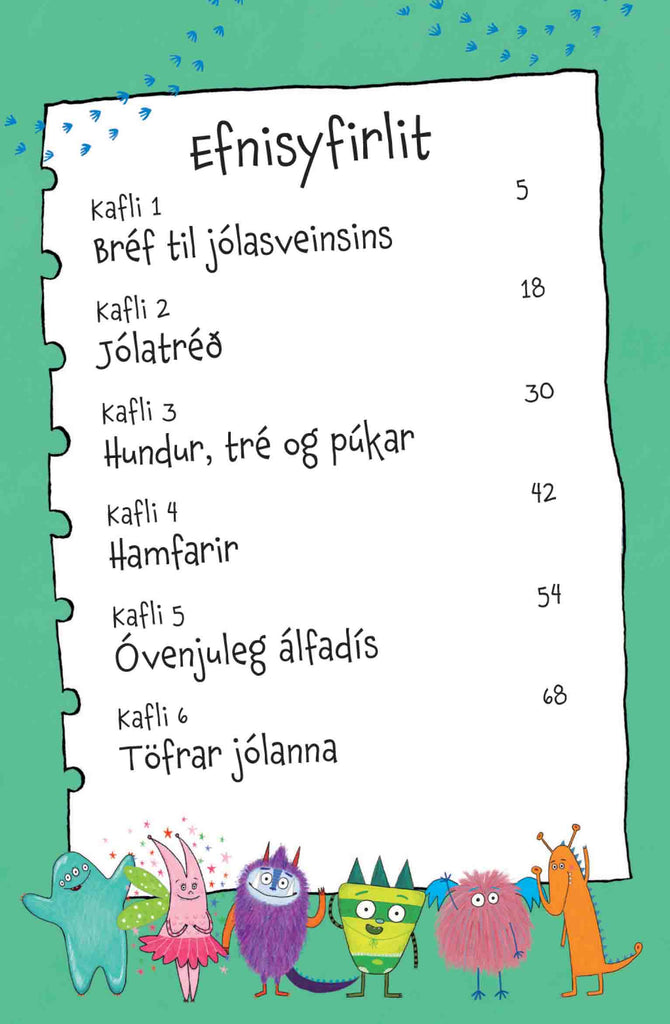 Efnisyfirlit
Kafli 1
5
Bréf til jólasveinsins
Kafli 2
18
Jólatréð
Kafli 3
30
Hundur, tré og púkar
Kafli 4
42
Hamfarir
Kafli 5
54
Óvenjuleg álfadís
Kafli 6
68
Töfrar jólanna